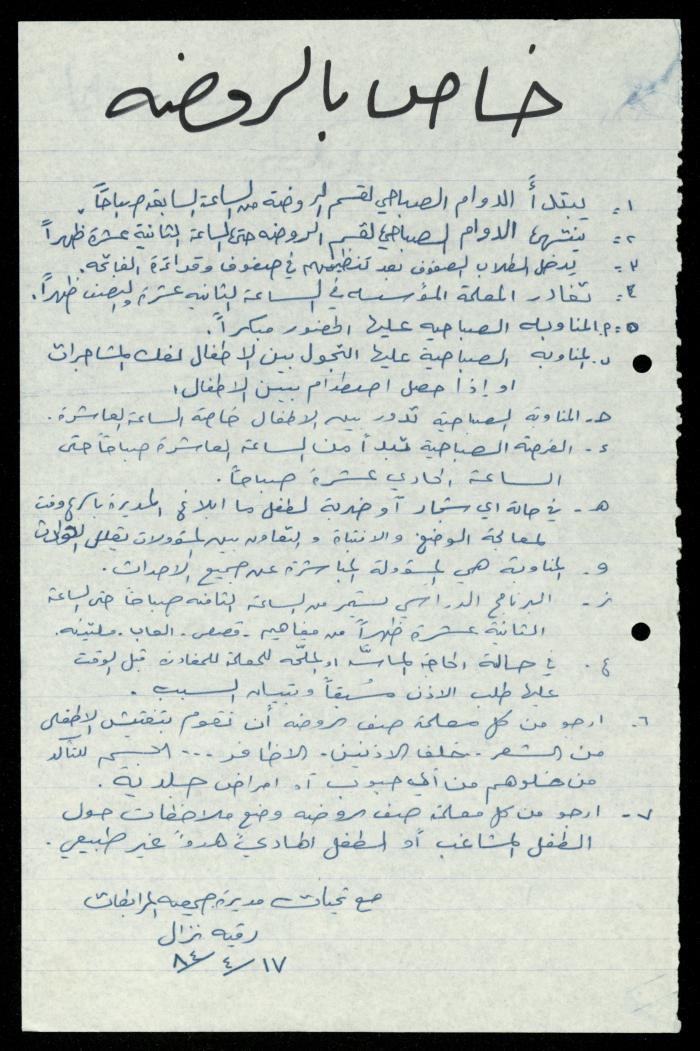 خاص بالروضه
١- يبتدأ الدوام الصباحي لقسم الروضة من الساعة السابعة صباحاً.
٢- ينتهي الدوام الصباحي لقسم الروضه حتى الساعة الثانية عشرة ظهراً
٣- يدخل الطلاب الصفوف بعد تنظيمهم في صفوف وقراءة الفاتحه.
٤- تغادر المعلمة المؤسسه في الساعة الثانيه عشرة والنصف ظهراً.
٥- المناوبه الصباحيه عليها الحضور مبكراً.
ب. المناوبه الصباحية عليها التجول بين الاطفال لفك المشاجرات
او إذا حصل اصطدام بين الاطفال.
ح- المناوبة الصباحية تدور بين الاطفال خاصة الساعة العاشرة.
ء- الفرصة الصباحية تبدأ من الساعة العاشرة صباحاً حتى
الساعة الحادي عشرة صباحاً.
هـ- في حالة اي شجار أو ضربة لطفل ما ابلاغ المديرة باسرع وقت
لمعالجة الوضع والانتباة والتعاون بين المسؤولات يقلل الحوادث
و- المناوبة هي المسؤولة المباشرة عن جميع الاحداث.
ز- البرنامج الدراسي يستمر من الساعة الثامنه صباحاً حتى الساعة
الثانية عشرة ظهراً من مفاهيم - قصص - العاب -
ع. في حالة الحاجة الماسّة او الملحّه للمعلمة للمغادره قبل الوقت
عليها طلب الاذن مُسبقاً وتبيان السبب.
٦- ارجو من كل معلمة صف الروضه أن تقوم بتفتيش الاطفال
من الشعر - خلف الاذنين - الاظافر ... الجسم للتأكد
من خلوهم من أي حبوب أو امراض جلدية.
٧- ارجو من كل معلمة صف الروضه وضع ملاحظات حول
الطفل المشاغب أو الطفل الهادئ هدوءً غير طبيعي.
مع تحيات مديرة جمعيه المرابطات
رقيه نزال
١٧/٤/٨٤